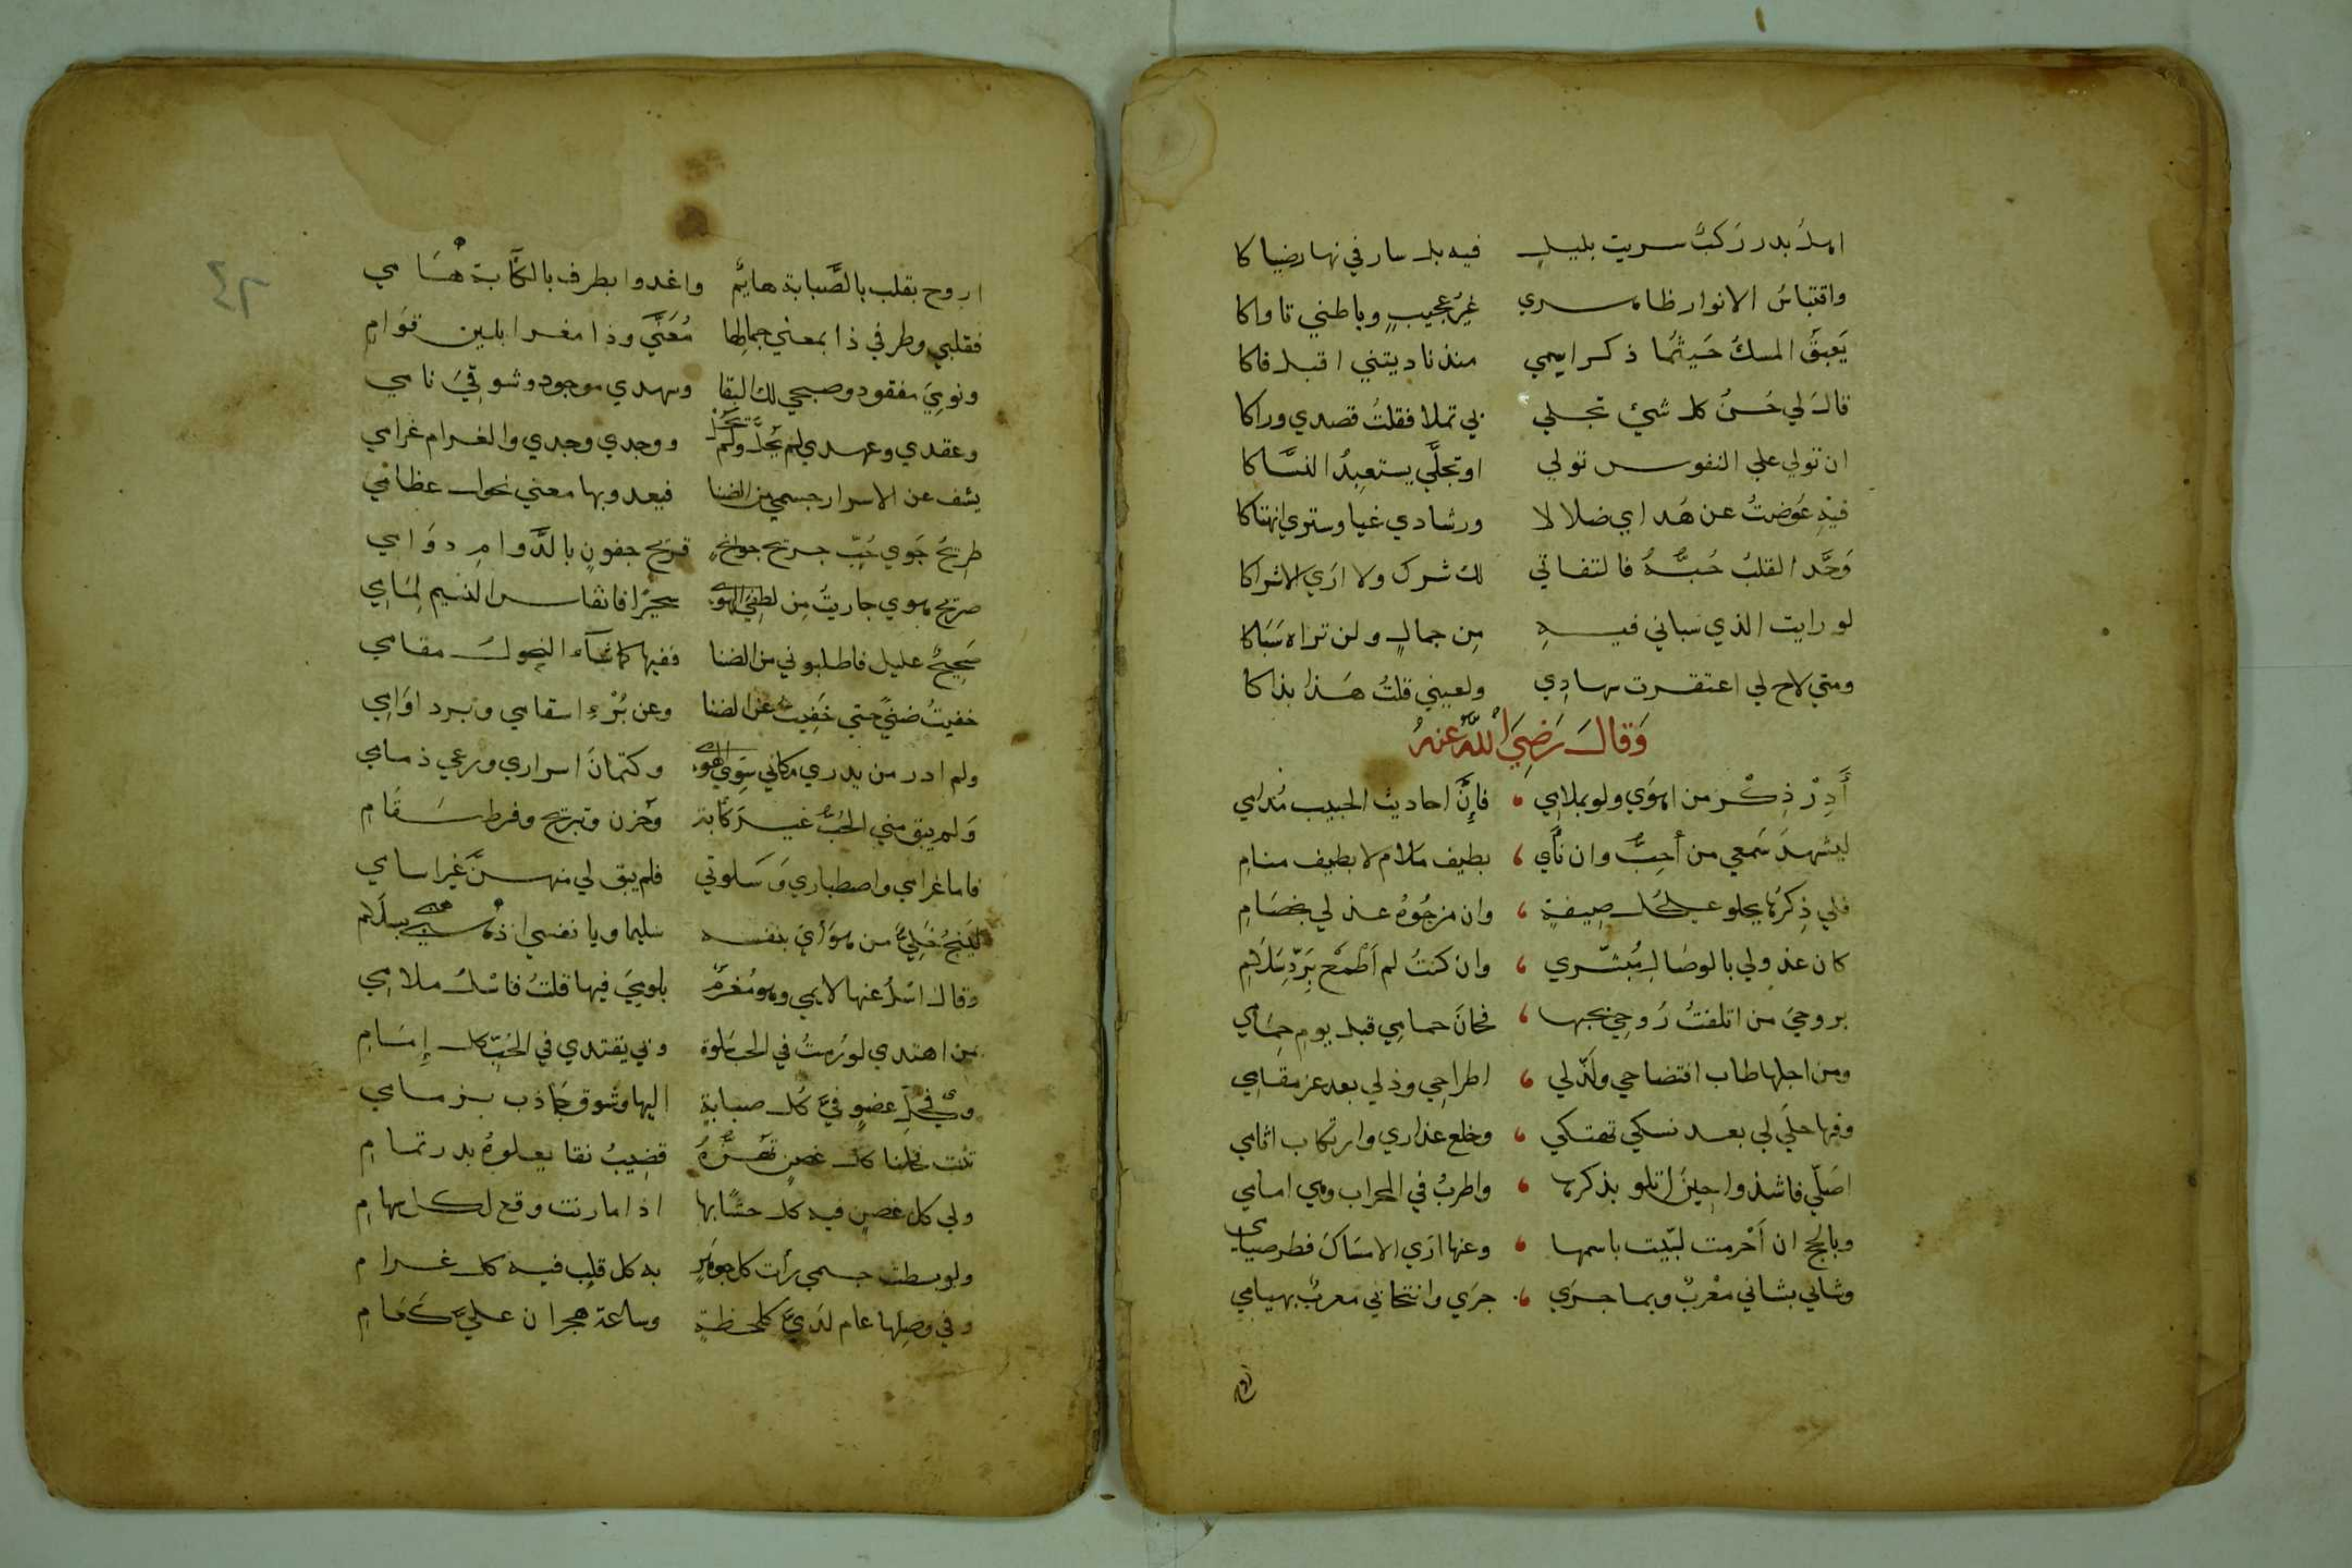 اهل بدر رَكبٌ سريت بليلٍ فيه بل سار في نهار ضيا كا
واقتباسُ الانوار ظاهري غيرُ عجيبٍ وباطني تاواكا
يَعبَقُ المسكُ حَيثُما ذكر اسمي منذ ناديتني اقبل فاكا
قال لي حُسنُ كل شيء تجلي بي تملا فقلتُ قصدي وراكا
ان تولي علي النفوس تولي او تجلَّي يستعبِدُ النسَّاكا
فيْهِ عُوّضتُ عن هُداي ضلالا ورشادي غيا وستري انهتاكا
وَحَّد القلبُ حُبُّهُ فالتفاتي لك شرك ولا اري الاشراكا
لو رايت الذي سَباني فيهِ مِن جمالٍ ولن تراه سَبَاكا
ومتي لاح لي اغتفرت سهادِي ولعيني قلتُ هَذا بذاكا
وَقالَ رَضِيَ اللّٰه عنهُ
أَدِرْ ذِكْرَ من اهوَي ولو بملامِي فإِنَّ احاديث الحبيب مُدامي
ليشهدَ سَمعي من أُحِبُّ وان نأَي بطيف ملام لا بطيف منامِ
فلي ذِكرُها يحلو علي كل صِيغةٍ وان مزجُوهُ عذلي بخصَامِ
كان عذولي بالوصَالِ مُبَشّري وان كنتُ لم أَطْمَع بِرَدِّ سَلَامِ
بروحيَ من اتلفتُ رُوحِي بحبها فحانَ حمامِي قبل يومِ حِمَامي
ومن اجلها طاب افتضاحي ولَذّ لي اطراحِي وذلي بعد عز مقامِي
وفيها حلَي لي بعد نسكي تهتكي وخلع عذاري وارتكاب اثامي
اصَلّي فاشذوا حِينَ اتلو بذكرها واطربُ في المحراب وهي امامي
وبالحج ان أَحْرمت لبّيت باسمها وعنها ارَي الامسَاكَ فطر صيامي
وشاني بشاني مغْربٌ وبما جرَي جرَي وانتحابي معربٌ بهيامي
اروح بقلب بالصَّبابة هايُم واغدوا بطرف بالكآبة هَامي
فقلبي وطرفي ذا بمعني جمالِها مُعَنَّي وذا مغرا بلين قوَامِ
ونومِيَ مفقود وصبحي لك البقا وسهدي موجود وشوقِيَ نامي
وعقدي وعهدي لم يُحلَّ ولم تحُل ووجدي وجدي والغرام غرامي
يشف عن الاسرار جسمي من الضنا فيعدو بها معني نحول عظامي
طرِيحُ جَوي حُبّ جريح جوانحٍ قريح جفونٍ بالدَّوامِ دوَامي
صريح هوي جاريتُ مِن لطفِيَ الهوا سحَيْرًا فانفاس النسيم لِمَامِي
صَحِيحٌ عليل فاطلبوني من الصَّبا ففيها كما شآء النحول مقامي
خفيتُ ضنيً حتي خَفِيت عن الضنا وعن بُرْءِ اسقامي وبرد اوَامِي
ولم ادر من يدري مكاني سِوَي الهوَي وكتمانَ اسراري ورعي ذمامِي
وَلم يبق مني الحُبُّ غيرَ كآبة وحُزن وتبريح وفرط سَقَامِ
فاما غرامي واصطباري وَسَلوتي فلم يبق لي منهنَّ غير اسامي
ليَنجُ خَلِيٌّ من هوَايَ بنفسه سليما ويا نفسي اذهبي بسلَام
وقال اسْلُ عنها لايمي وهو مُغرمٌ بلومِيَ فيها قلتُ فاسْلُ ملامِي
بمن اهتدي لو رُمتُ في الحب سَلوة وبي يقتدي في الحُبِّ كل إِمَامِ
وفي كلِّ عضوٍ فيَّ كل صبابةٍ اليها وشوق جَاذب بزمامي
تثنت فخلنا كل غصنٍ تهُزُّهُ قضِيبُ نقا يعلوهُ بدر تمامِ
ولي كل غصنٍ فيه كل حشًا بها اذا ما رنت وقع لكل سهامِ
ولو بسطت جسمي رأت كل جوهَرٍ به كل قلب فيه كل غرامِ
وفي وصلِها عام لدَيَّ كلحظةٍ وساعة هجران عليَّ كَعَامِ